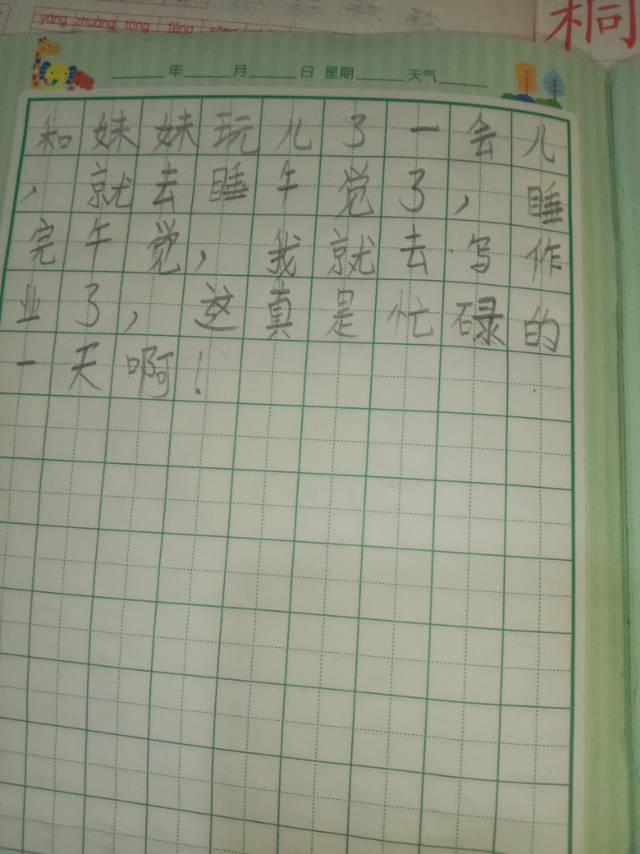 yáng zhuāng tóng
桐
年 月 日 星期 天气
和妹妹玩儿了一会儿
，就去睡午觉了，睡
完午觉，我就去写作
业了，这真是忙碌的
一天啊！